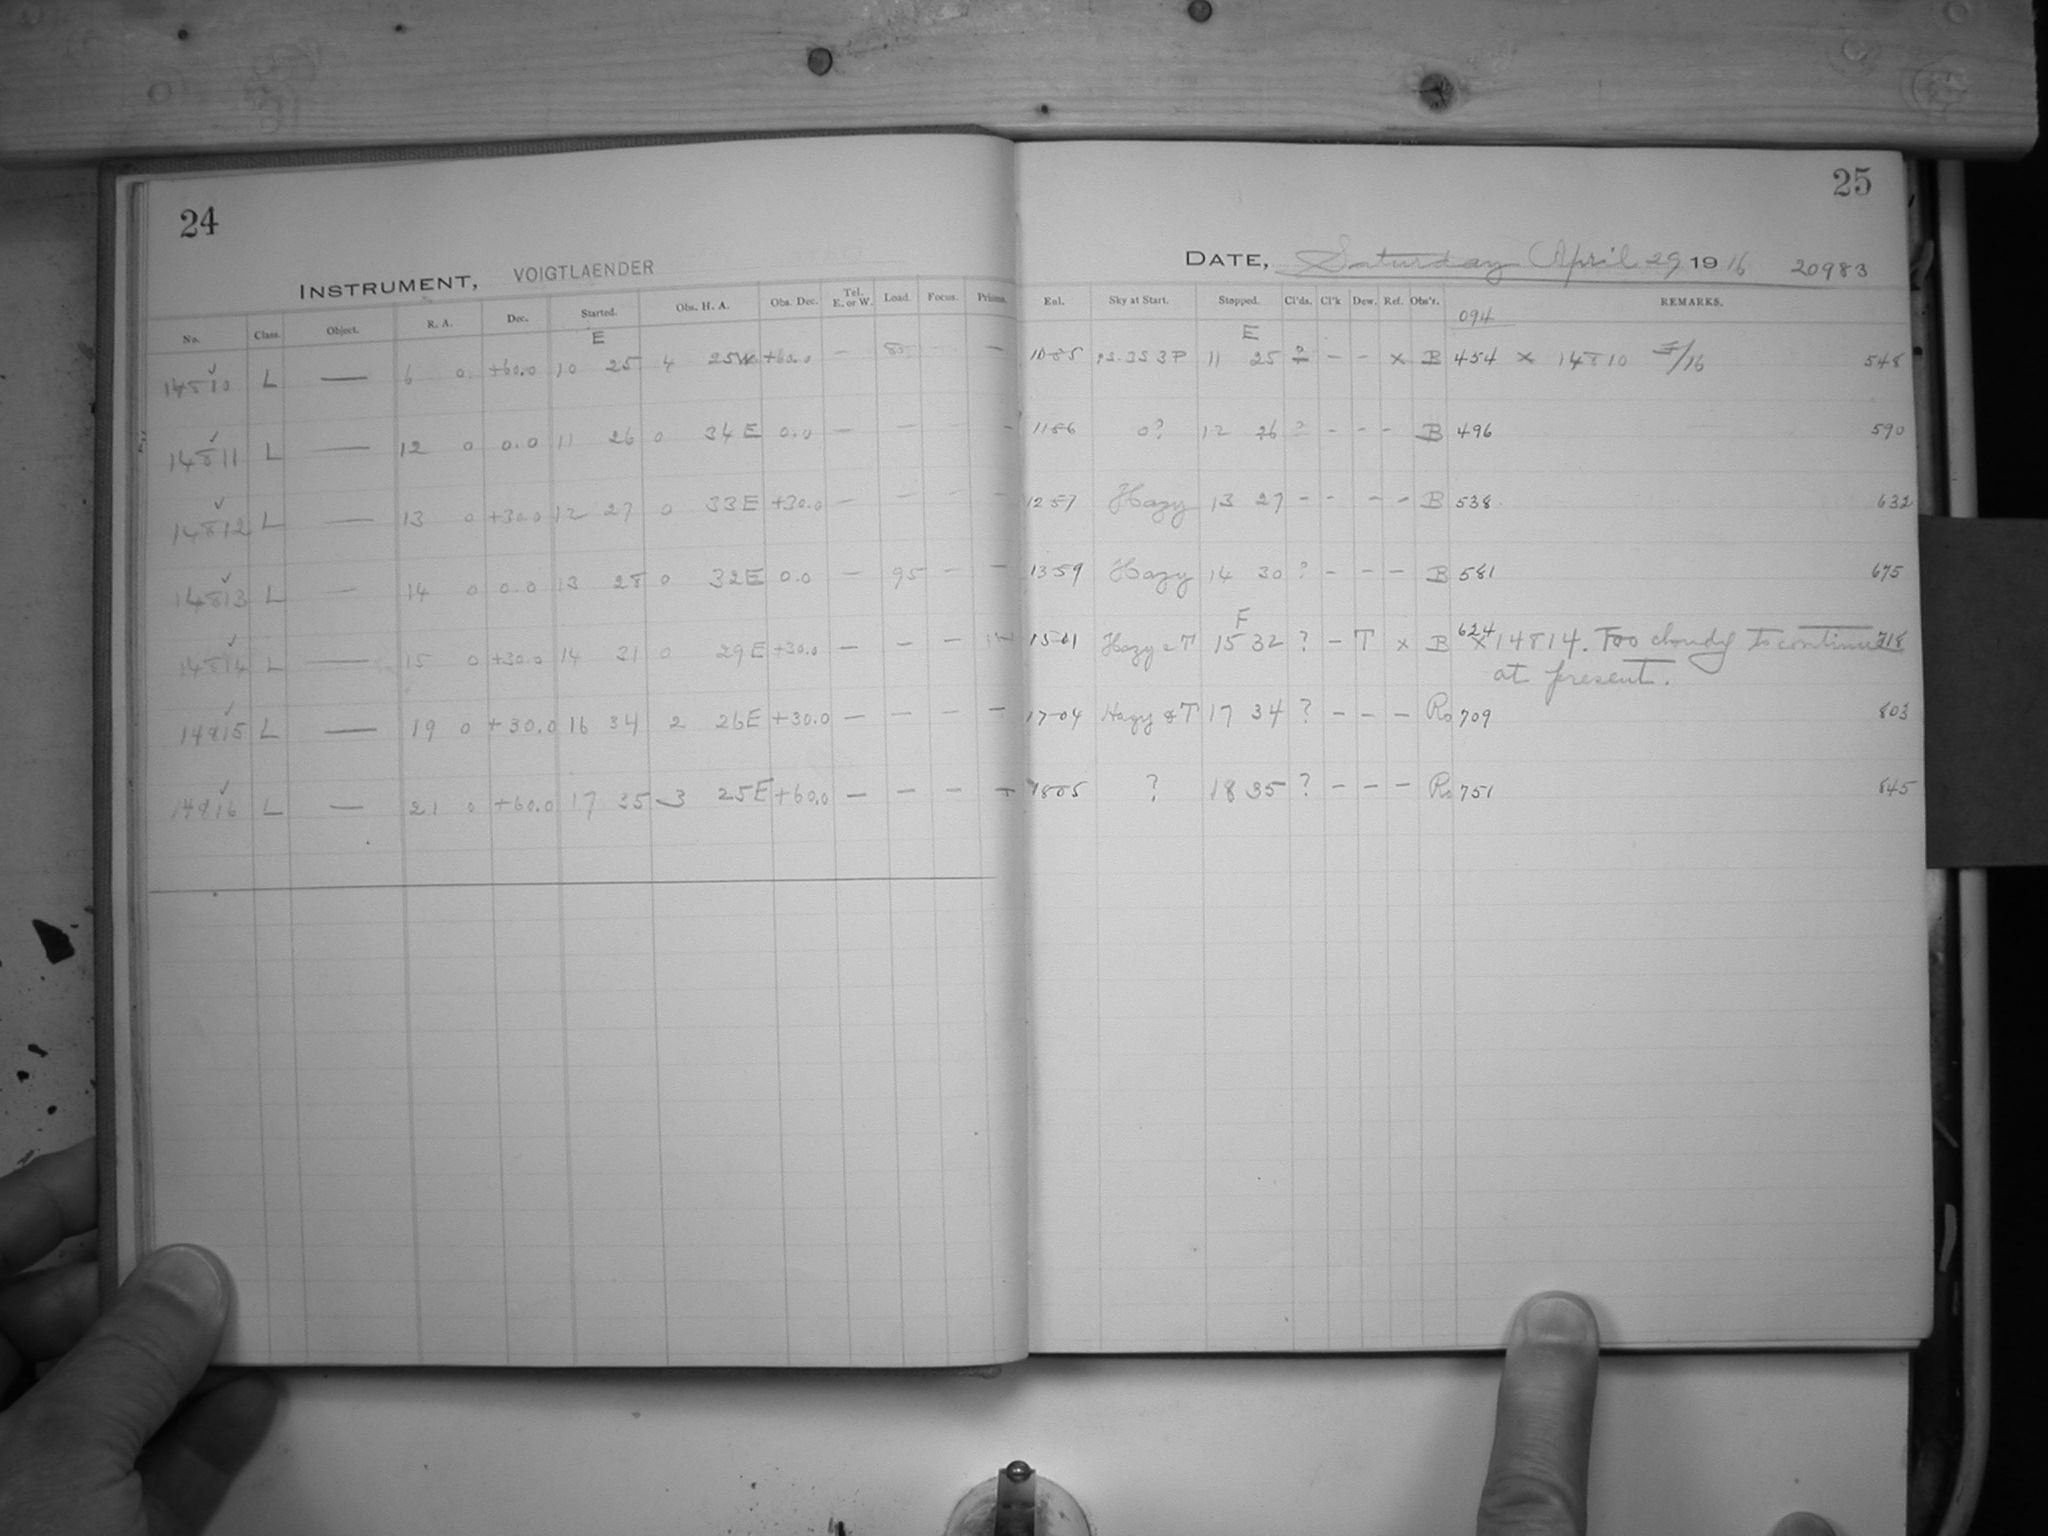 24
INSTRUMENT, VOIGTLAENDER
No. Class. Object. R. A. Dec. Started. Obs. H. A. Obs. Dec. Tel. E. or W. Load. Focus. Prisms.
E
14810 L — 6 0 +60.0 10 25 4 25W +60.0 — 85 —
14811 L — 12 0 0.0 11 26 0 34E 0.0 — — — —
14812 L — 13 0 +30.0 12 27 0 33E +30.0 — — — —
14813 L — 14 0 0.0 13 28 0 32E 0.0 — 95 — —
14814 L — 15 0 +30.0 14 31 0 29E +30.0 — — —
14815 L — 19 0 +30.0 16 34 2 26E +30.0 — — — —
14816 L — 21 0 +60.0 17 35 3 25E +60.0 — — — —
25
DATE, Saturday April 29 1916 20983
Exl. Sky at Start. Stopped. Cl'ds. Cl'k Dew. Ref. Obs'r. REMARKS.
E 094
11 25 ? – – x B 454 x 14810 /16 548
1156 0? 12 26 ? – – – B 496 590
1257 Hazy 13 27 – – – – B 538 632
1359 Hazy 14 30 ? – – – B 581 675
F
1501 Hazy & T 15 32 ? – T x B 624 x 14814. Too cloudy to continue 718
at present.
1704 Hazy & T 17 34 ? – – – Ro 709 803
1805 ? 18 35 ? – – – Ro 751 845